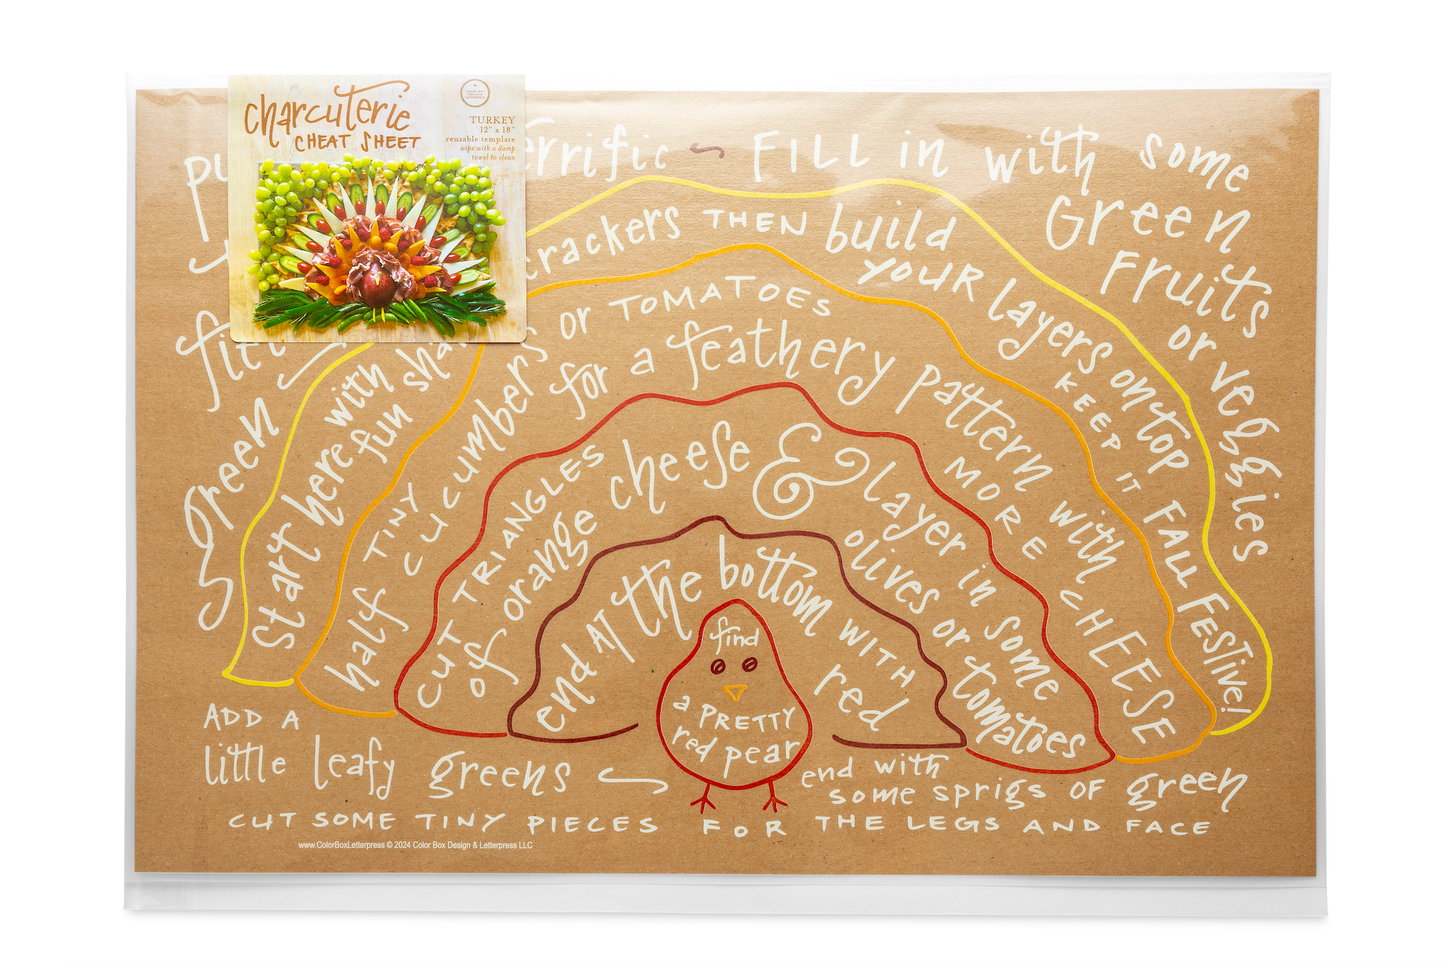 charcuterie
CHEAT SHEET
TURKEY
12" x 18"
reusable template
wipe with a damp
towel to clean
FILL in with some
Green
Fruits
or veggies
green
Start here with
fun
crackers THEN build
YOUR layers ontop
KEEP IT FALL FESTIVE!
half TINY
cucumbers or TOMATOES
for a feathery pattern with
MORE CHEESE
CUT TRIANGLES
of orange cheese & layer in some
olives or tomatoes
end AT the bottom WITH
red
find
a PRETTY
red pear
ADD A
little leafy greens
end with
some sprigs OF green
CUT SOME TINY PIECES FOR THE LEGS AND FACE
www.ColorBoxLetterpress © 2024 Color Box Design & Letterpress LLC